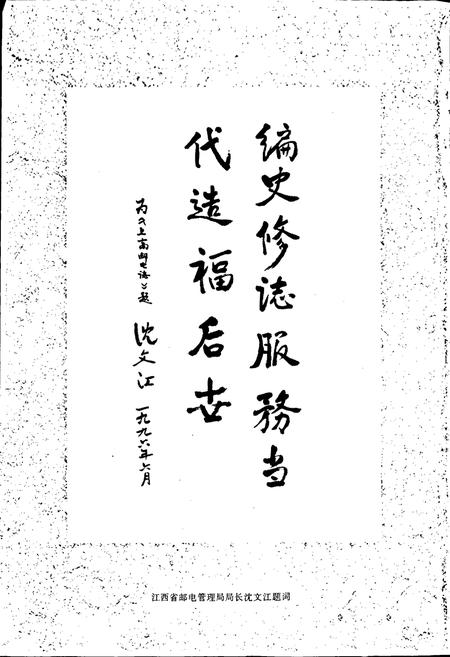 编史修誌服務当
代造福后世
为《上高邮电誌》题
沈文江 一九九六年六月
江西省邮电管理局局长沈文江题词